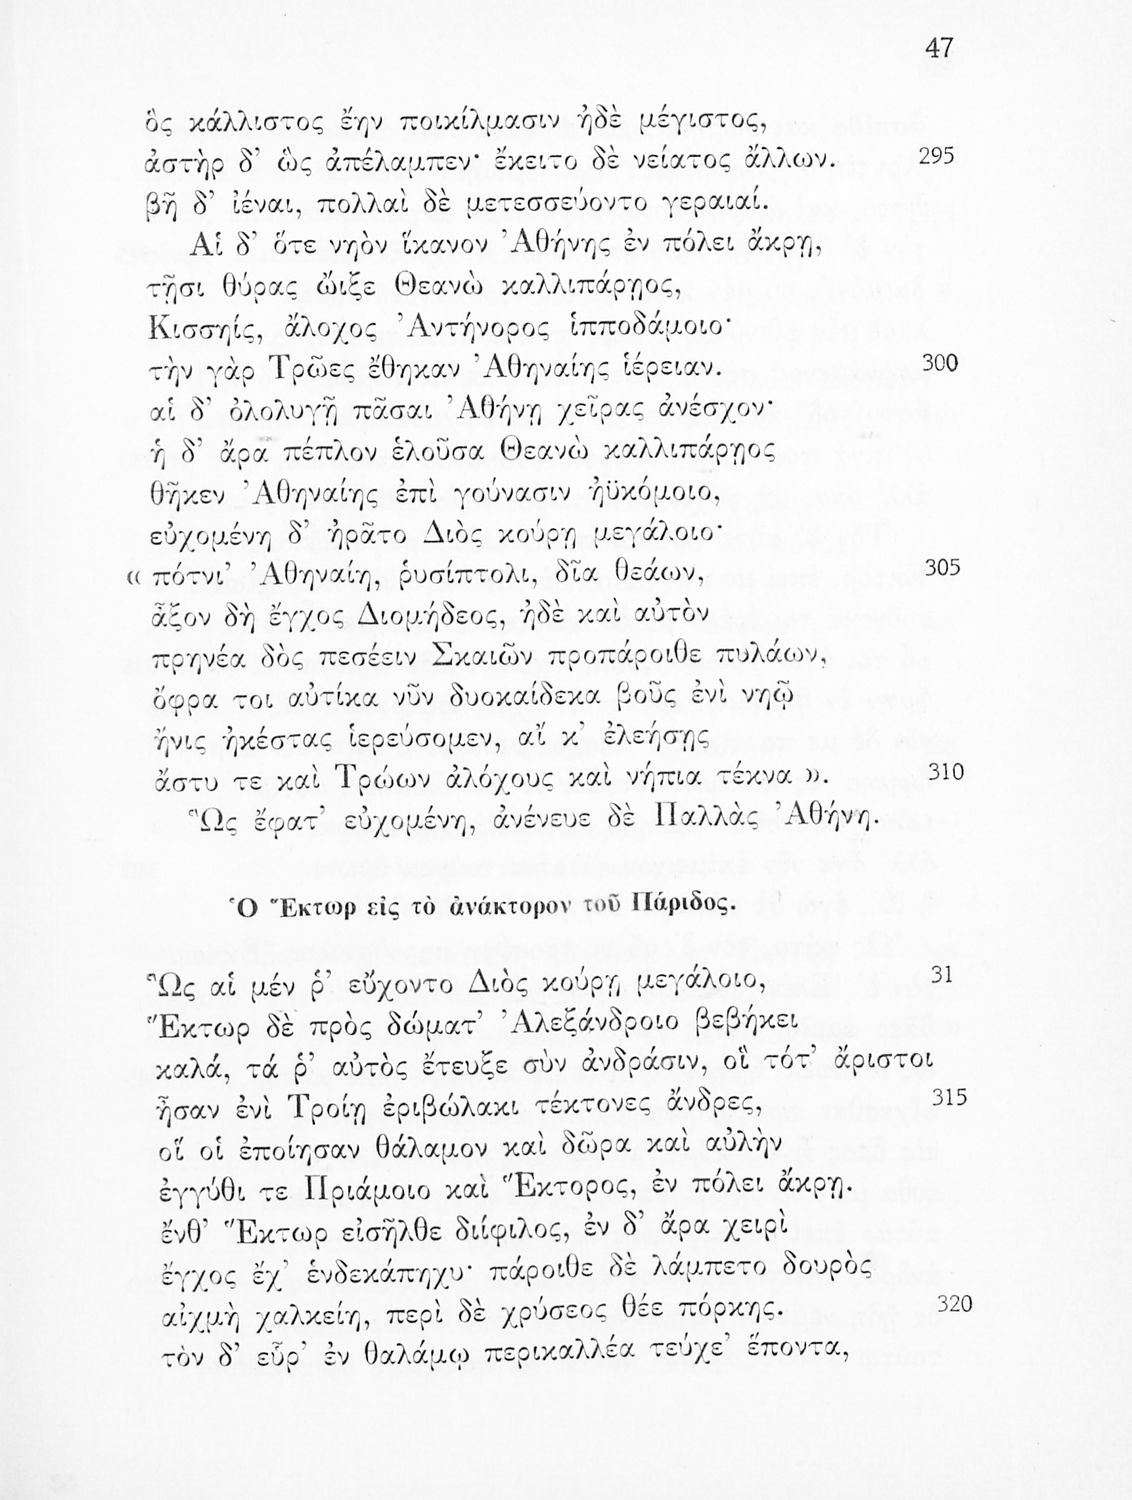 47
ὃς κάλλιστος ἔην ποικίλμασιν ἠδὲ μέγιστος,
ἀστὴρ δ’ ὣς ἀπέλαμπεν· ἔκειτο δὲ νείατος ἄλλων. 295
βῆ δ’ ἰέναι, πολλαὶ δὲ μετεσσεύοντο γεραιαί.
Αἱ δ’ ὅτε νηὸν ἵκανον Ἀθήνης ἐν πόλει ἄκρῃ,
τῇσι θύρας ὤιξε Θεανὼ καλλιπάρῃος,
Κισσηίς, ἄλοχος Ἀντήνορος ἱπποδάμοιο·
τὴν γὰρ Τρῶες ἔθηκαν Ἀθηναίης ἱέρειαν. 300
αἱ δ’ ὀλολυγῇ πᾶσαι Ἀθήνῃ χεῖρας ἀνέσχον·
ἡ δ’ ἄρα πέπλον ἑλοῦσα Θεανὼ καλλιπάρῃος
θῆκεν Ἀθηναίης ἐπὶ γούνασιν ἠϋκόμοιο,
εὐχομένη δ’ ἠρᾶτο Διὸς κούρῃ μεγάλοιο·
« πότνι’ Ἀθηναίη, ῥυσίπτολι, δῖα θεάων, 305
ἆξον δὴ ἔγχος Διομήδεος, ἠδὲ καὶ αὐτὸν
πρηνέα δὸς πεσέειν Σκαιῶν προπάροιθε πυλάων,
ὄφρα τοι αὐτίκα νῦν δυοκαίδεκα βοῦς ἐνὶ νηῷ
ἤνις ἠκέστας ἱερεύσομεν, αἴ κ’ ἐλεήσῃς
ἄστυ τε καὶ Τρώων ἀλόχους καὶ νήπια τέκνα ». 310
Ὣς ἔφατ’ εὐχομένη, ἀνένευε δὲ Παλλὰς Ἀθήνη.
Ὁ Ἕκτωρ εἰς τὸ ἀνάκτορον τοῦ Πάριδος.
Ὣς αἱ μέν ῥ’ εὔχοντο Διὸς κούρῃ μεγάλοιο, 31
Ἕκτωρ δὲ πρὸς δώματ’ Ἀλεξάνδροιο βεβήκει
καλά, τά ῥ’ αὐτὸς ἔτευξε σὺν ἀνδράσιν, οἳ τότ’ ἄριστοι
ἦσαν ἐνὶ Τροίῃ ἐριβώλακι τέκτονες ἄνδρες, 315
οἵ οἱ ἐποίησαν θάλαμον καὶ δῶρα καὶ αὐλὴν
ἐγγύθι τε Πριάμοιο καὶ Ἕκτορος, ἐν πόλει ἄκρῃ.
ἔνθ’ Ἕκτωρ εἰσῆλθε διίφιλος, ἐν δ’ ἄρα χειρὶ
ἔγχος ἔχ’ ἑνδεκάπηχυ· πάροιθε δὲ λάμπετο δουρὸς
αἰχμὴ χαλκείη, περὶ δὲ χρύσεος θέε πόρκης. 320
τὸν δ’ εὗρ’ ἐν θαλάμῳ περικαλλέα τεύχε’ ἕποντα,